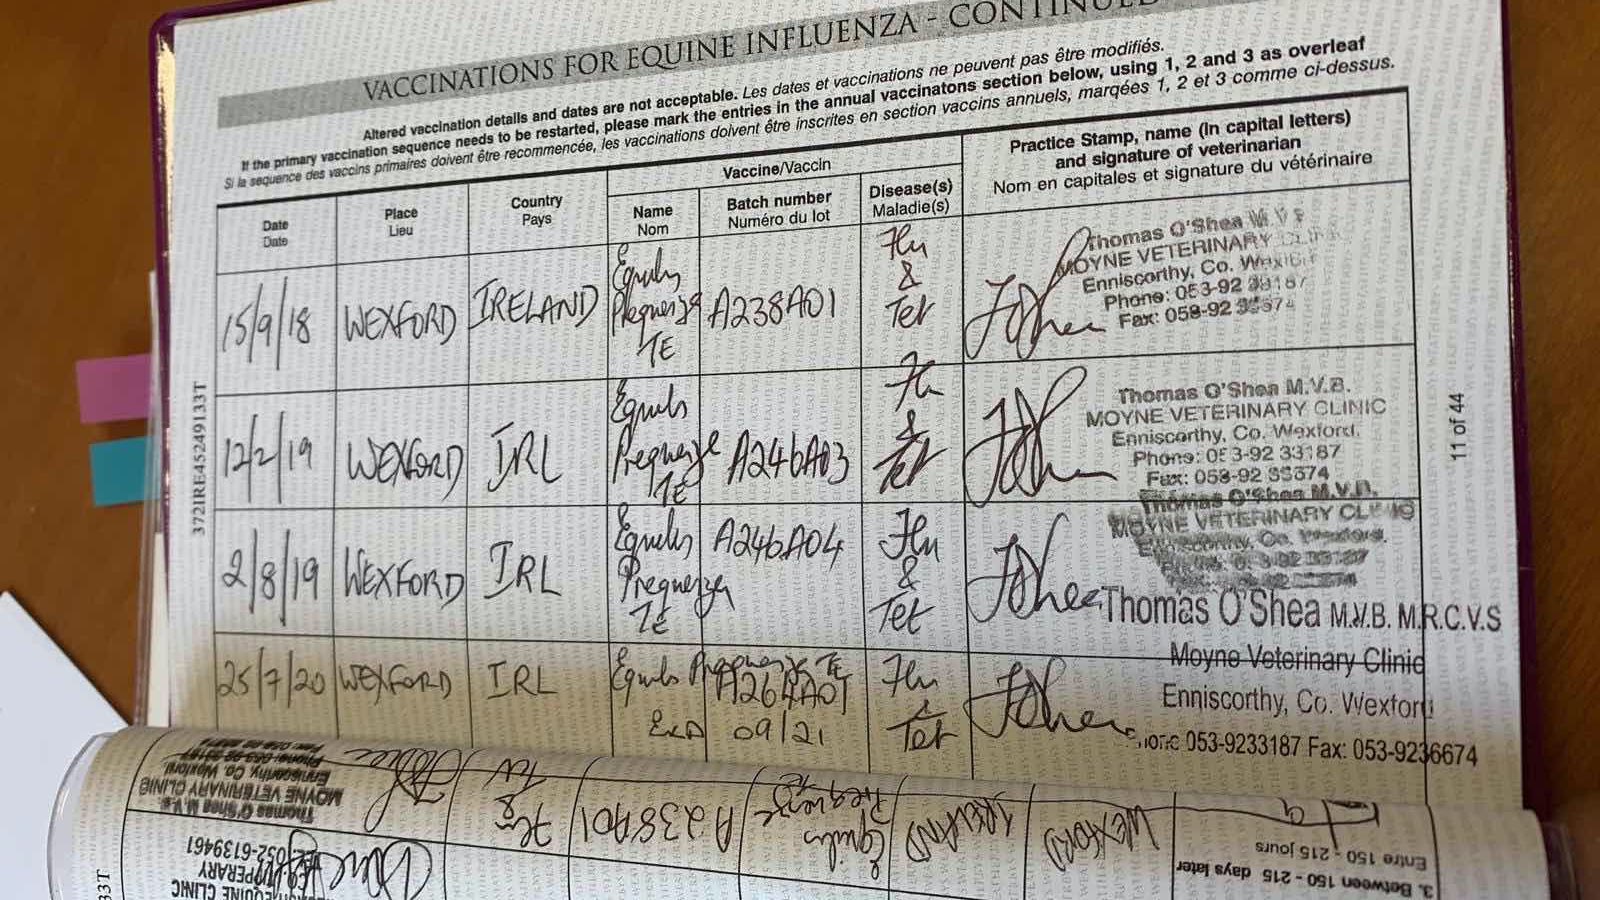 VACCINATIONS FOR EQUINE INFLUENZA - CONTINUED
Altered vaccination details and dates are not acceptable. Les dates et vaccinations ne peuvent pas être modifiés.
If the primary vaccination sequence needs to be restarted, please mark the entries in the annual vaccinatons section below, using 1, 2 and 3 as overleaf
Si la sequence des vaccins primaires doivent être recommencée, les vaccinations doivent être inscrites en section vaccins annuels, marqées 1, 2 et 3 comme ci-dessus.
Date
Date
Place
Lieu
Country
Pays
Vaccine/Vaccin
Name
Nom
Batch number
Numéro du lot
Disease(s)
Maladie(s)
Practice Stamp, name (in capital letters)
and signature of veterinarian
Nom en capitales et signature du vétérinaire
15/9/18
WEXFORD
IRELAND
Equilis
Prequenza
TE
A238A01
Flu
&
Tet
Thomas O'Shea M.V.B
MOYNE VETERINARY CLINIC
Enniscorthy, Co. Wexford
Phone: 053-92 33187
Fax: 053-92
12/2/19
WEXFORD
IRL
Equilis
Prequenza
TE
A246A03
Flu
&
Tet
Thomas O'Shea M.V.B.
MOYNE VETERINARY CLINIC
Enniscorthy, Co. Wexford.
Phone: 053-92 33187
Fax: 053-92
2/8/19
WEXFORD
IRL
Equilis
Prequenza
TE
A246A04
Flu
&
Tet
Thomas O'Shea M.V.B.
MOYNE VETERINARY CLINIC
Enniscorthy, Co. Wexford.
Thomas O'Shea M.V.B. M.R.C.V.S
Moyne Veterinary Clinic
Enniscorthy, Co. Wexford
Phone 053-9233187 Fax: 053-9236674
25/7/20
WEXFORD
IRL
Equilis Prequenza TE
A264A01
EXP 09/21
Flu
&
Tet
372IRE452491133T
11 of 44
3. Between 150 - 215 days later
Entre 150 - 215 jours
WEXFORD
IRELAND
Equilis
Prequenza
TE
A238A01
Flu
&
Tet
Thomas O'Shea M.V.B.
MOYNE VETERINARY CLINIC
Enniscorthy Co. Wexford
EQUINE CLINIC
TIPPERARY
TEL: 052-6139461
33T